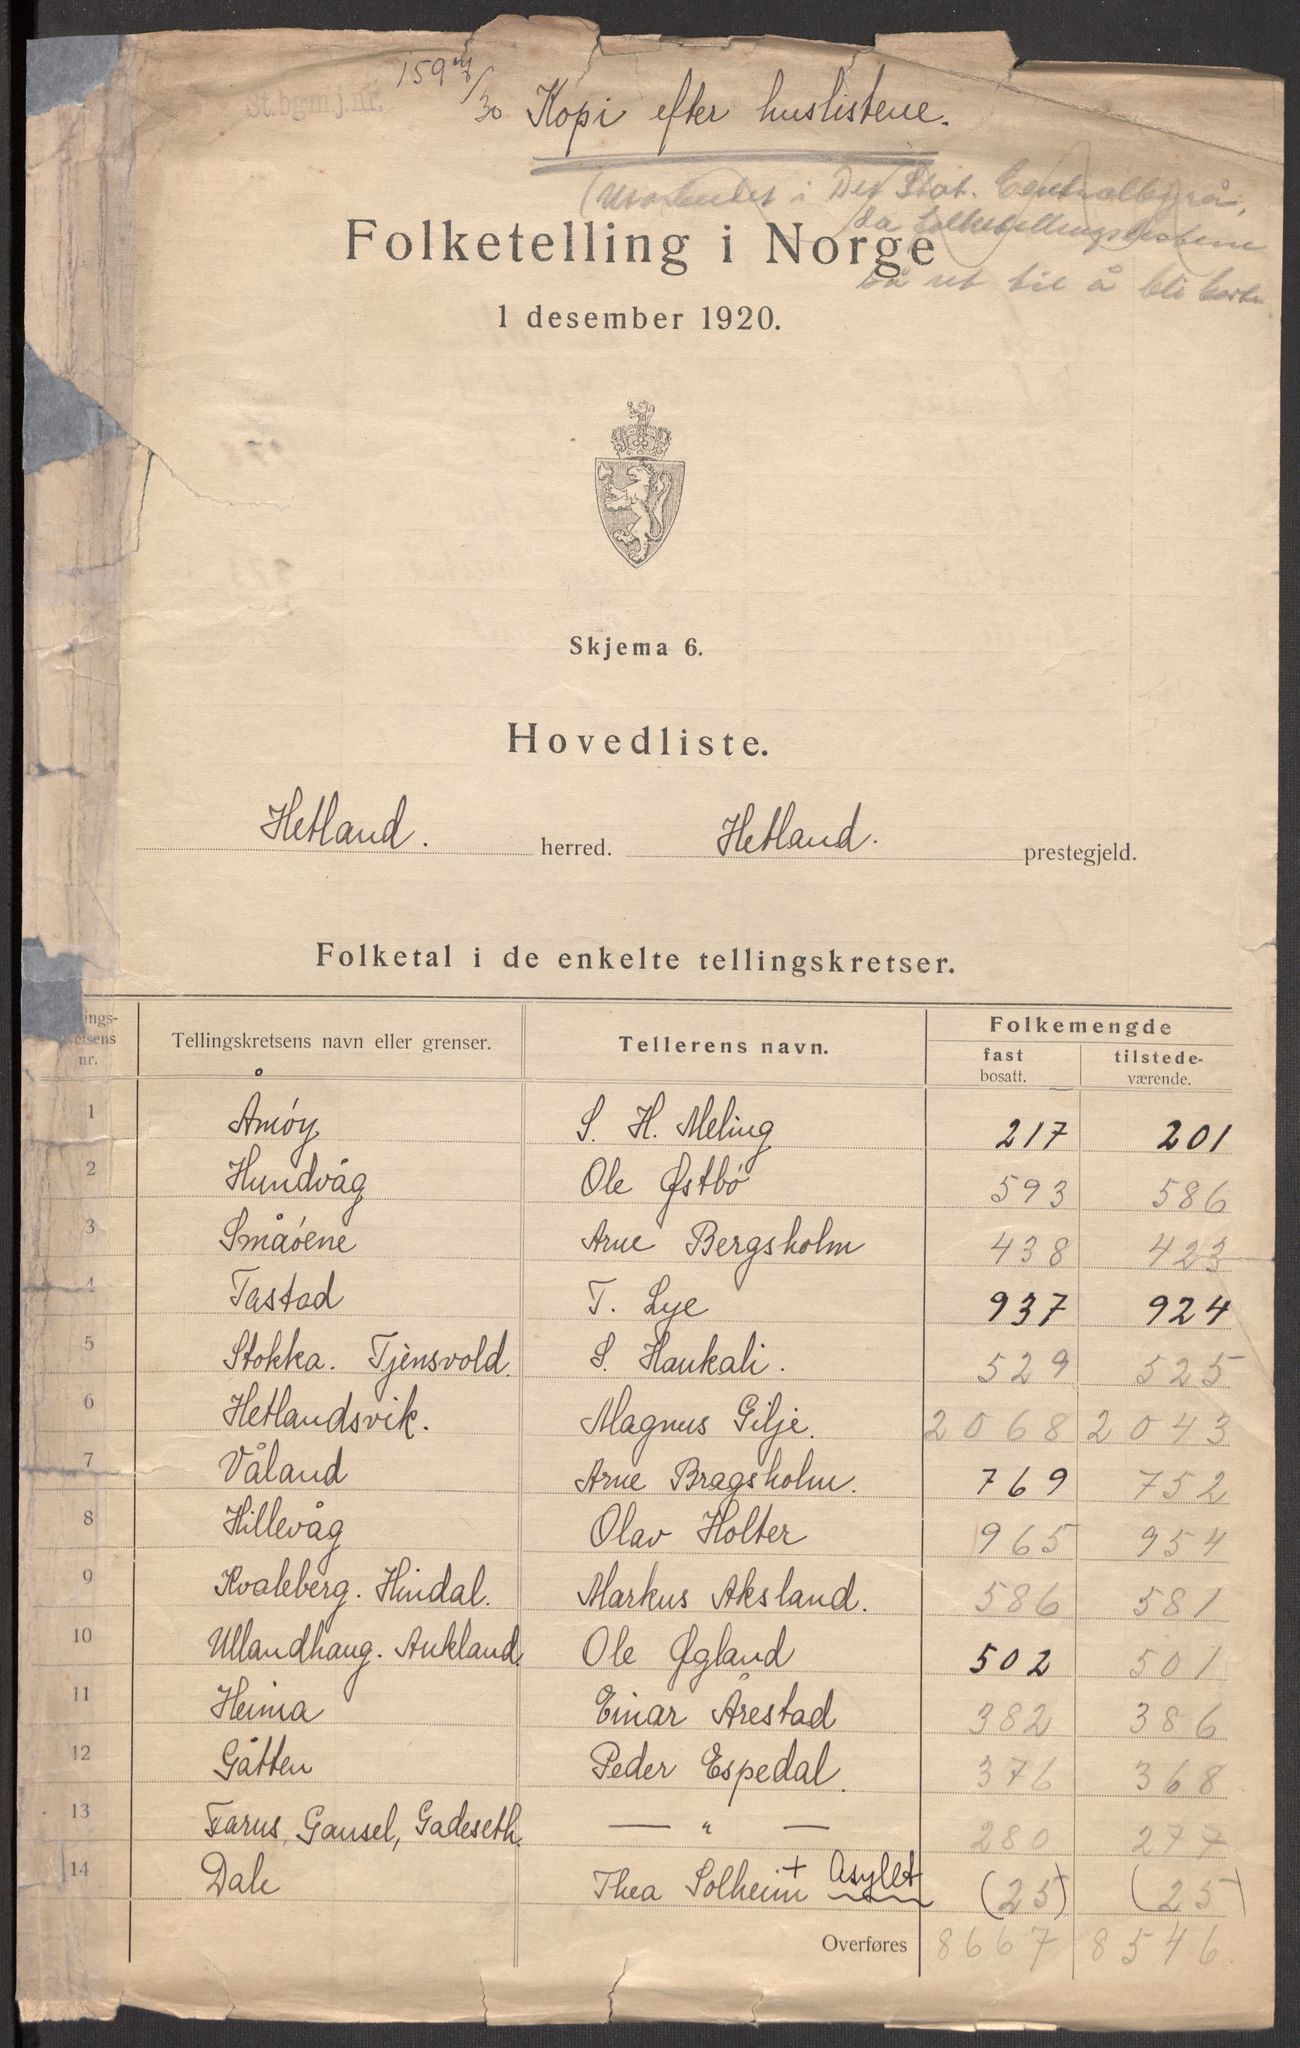 St.bgm.j.nr. 159 /30 Kopi efter huslistene.
(Utarbeidet i Det Stat. Centralbyrå,
da folketellingslistene
så ut til å bli borte
Folketelling i Norge
1 desember 1920.
Skjema 6.
Hovedliste.
Hetland. herred. Hetland. prestegjeld.
Folketal i de enkelte tellingskretser.
nr. Tellingskretsens navn eller grenser. Tellerens navn. Folkemengde
fast bosatt. tilstede-værende.
1 Åmøy S. H. Meling 217 201
2 Hundvåg Ole Østbø 593 586
3 Småøene Arne Bergsholm 438 423
4 Tastad T. Lye 937 924
5 Stokka. Tjensvold. S. Haukali. 529 525
6 Hetlandsvik. Magnus Gilje. 2068 2043
7 Våland Arne Bragsholm. 769 752
8 Hillevåg Olav Holter 965 954
9 Kvaleberg. Hindal. Markus Aksland. 586 581
10 Ullandhaug. Aukland. Ole Øgland 502 501
11 Heima Einar Årestad 382 386
12 Gåtten Peder Espedal. 376 368
13 Farus, Gausel, Gadeseth. — " — 280 277
14 Dale Thea Solheim + Asylet (25) (25)
Overføres 8667 8546